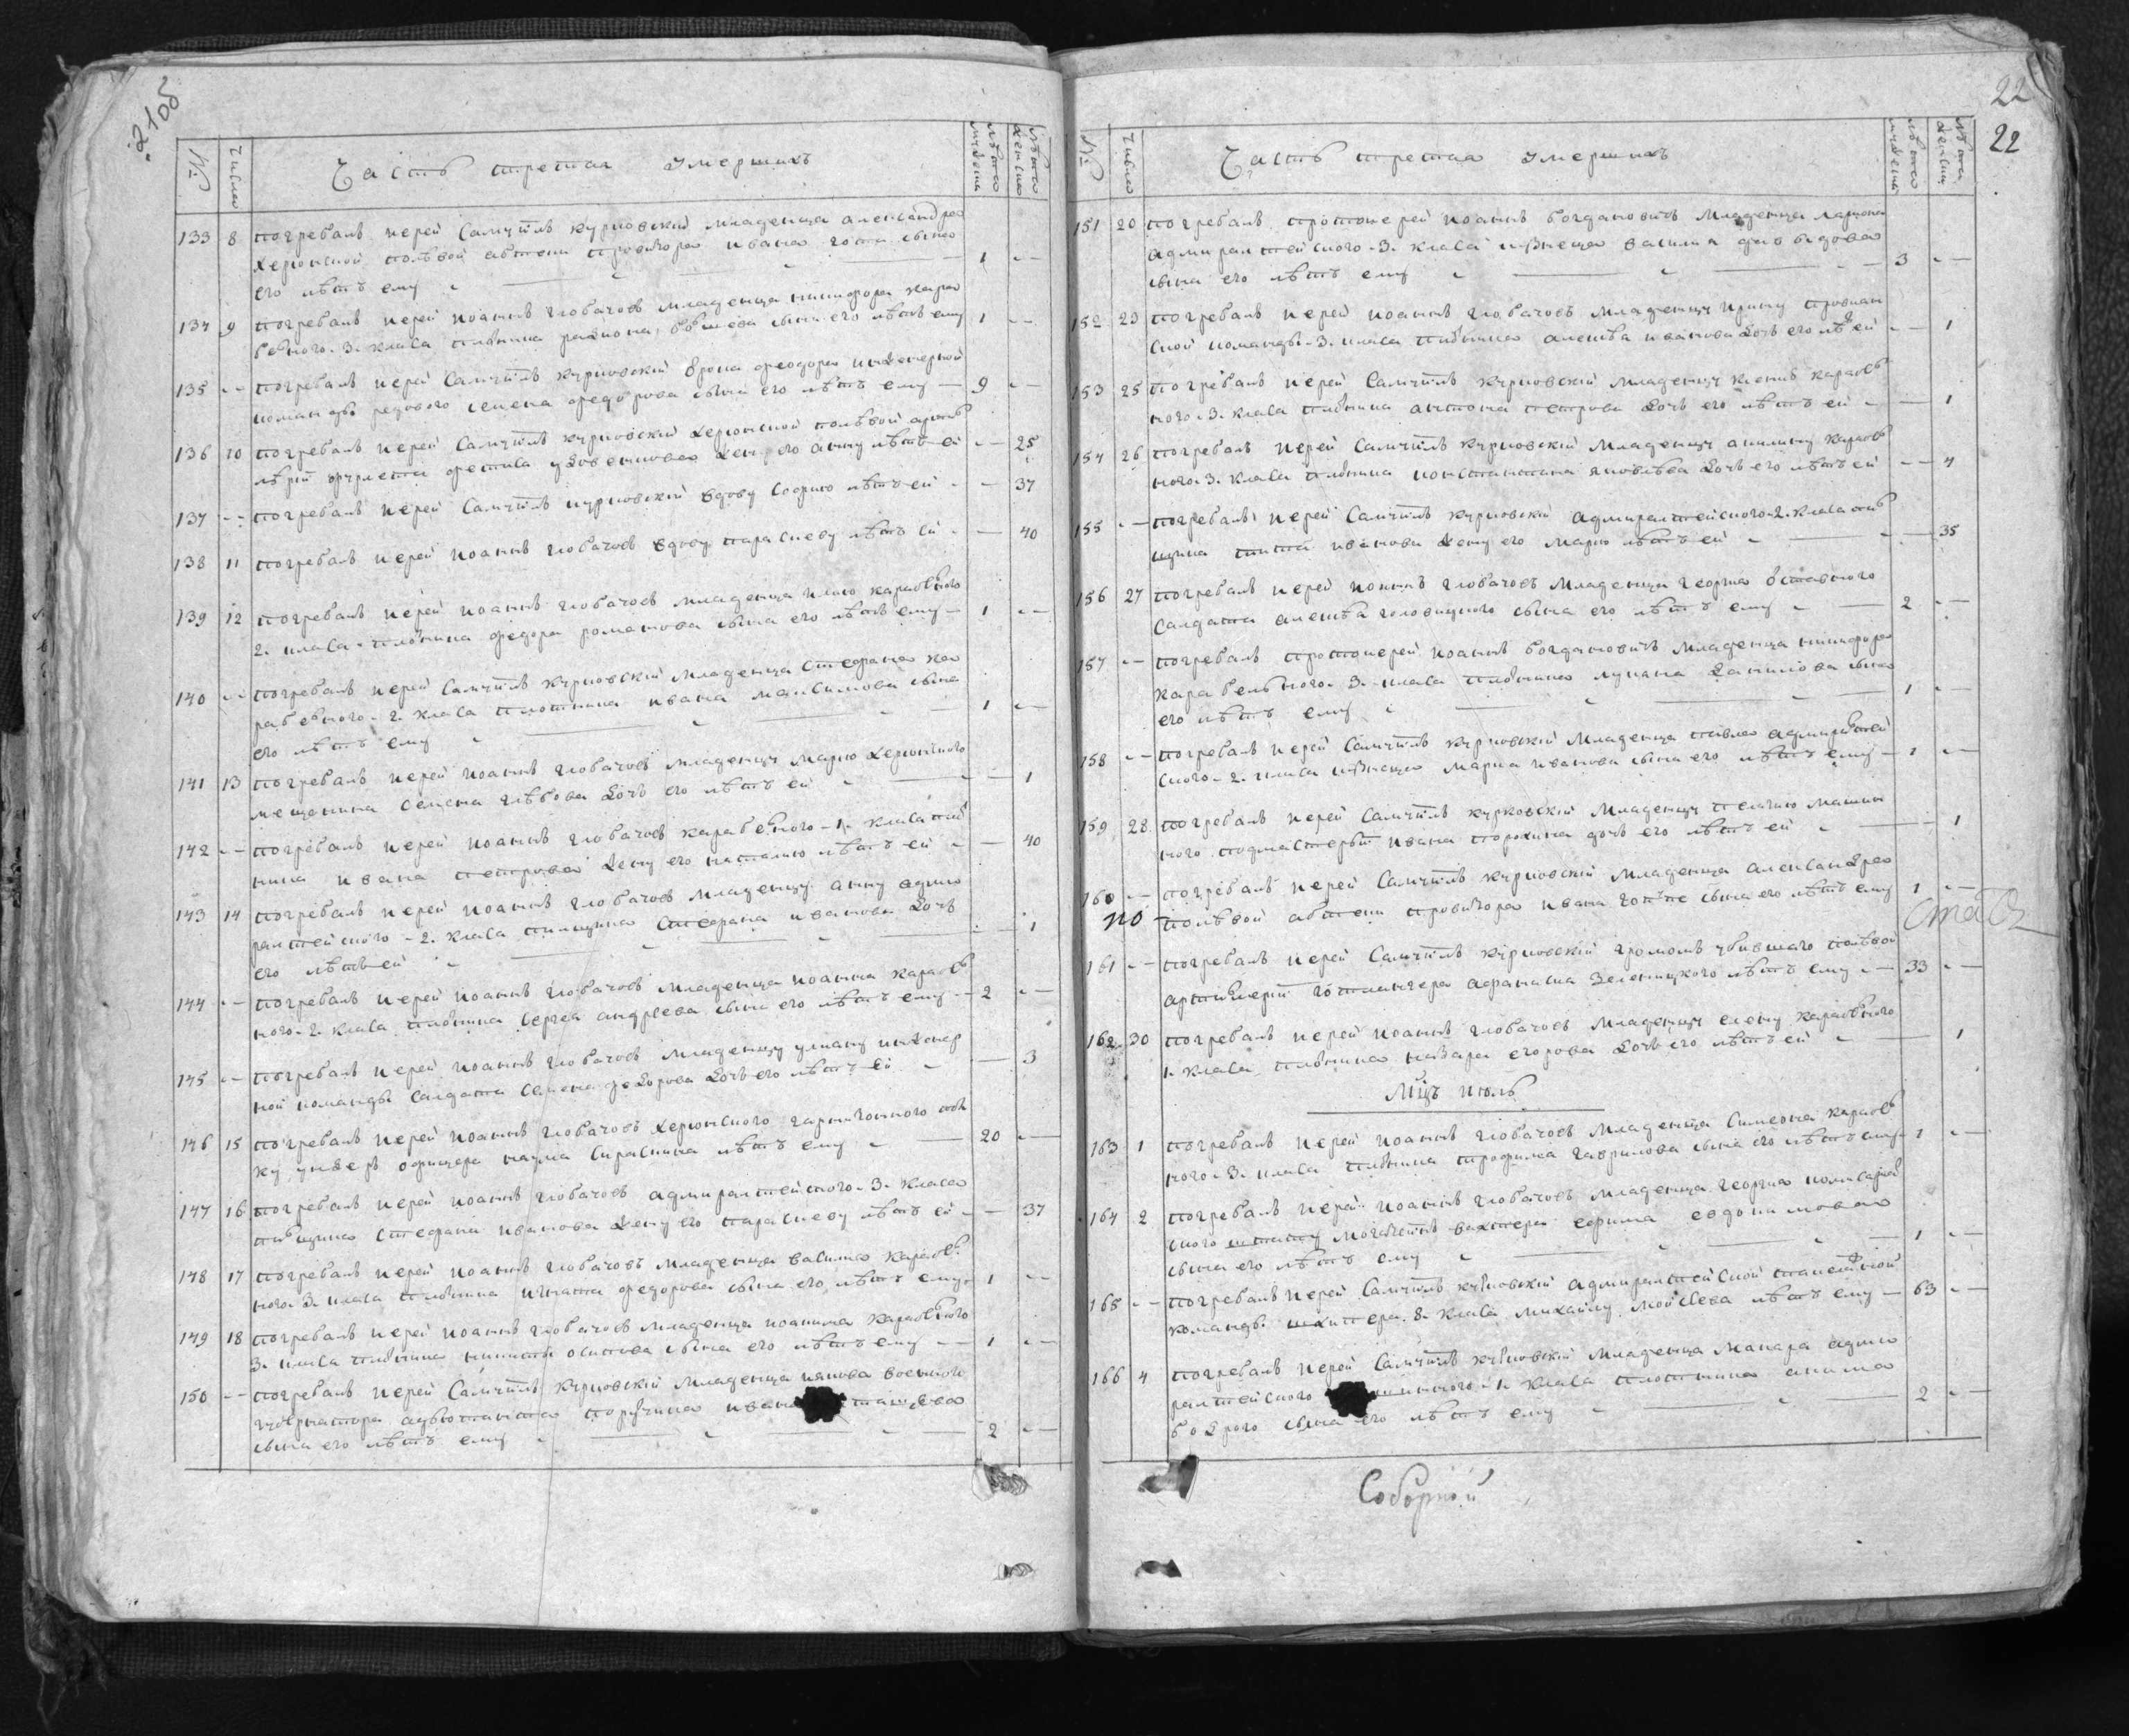 2105
№
Число
Часть третия умершихъ
Лѣта мужеска
Лѣта женска
133 8 погребалъ иерей Самуилъ курповскій младенца александра
херсонской полѣвой аптеки провизора ивана гота сына
его лѣтъ ему 1
134 9 погребалъ иерей иоаннъ глобачовъ младенца никифора кара
бељного 3. класа плотника сына его лѣтъ ему 1
135 погребалъ иерей Самуилъ курповскій феодора инженерной
команды рядового семена федорова сына его лѣтъ ему 9
136 10 погребалъ иерей Самуилъ курповскій херсонской полѣвой артил
лѣріи жену его анну лѣтъ ей 25
137 погребалъ иерей Самуилъ курповскій вдову софию лѣтъ ей 37
138 11 погребалъ иерей иоаннъ глобачовъ вдову параскеву лѣтъ ей 40
139 12 погребалъ иерей иоаннъ глобачовъ младенца илию карабельного
2. класа плотника федора романова сына его лѣтъ ему 1
140 погребалъ иерей Самуилъ курповскій младенца стефана ка
рабельного 2. класа плотника ивана максимова сына
его лѣтъ ему 1
141 13 погребалъ иерей иоаннъ глобачовъ младенцу марию херсонского
мещанина семена глѣбова дочь его лѣтъ ей 1
142 погребалъ иерей иоаннъ глобачовъ карабельного 1. класа плот
ника ивана петрова жену его наталию лѣтъ ей 40
143 14 погребалъ иерей иоаннъ глобачовъ младенцу анну адми
ралтейского 2. класа пилщика стефана иванова дочь
его лѣтъ ей 1
144 погребалъ иерей иоаннъ глобачовъ младенца иоанна карабель
ного 2. класа плотника сергея андрѣева сына его лѣтъ ему 2
145 погребалъ иерей иоаннъ глобачовъ младенцу улиану инженер
ной команды салдата семена федорова дочь его лѣтъ ей 3
146 15 погребалъ иерей иоаннъ глобачовъ херсонского гарнизонного пол
ку ундеръ офицера наума лѣтъ ему 20
147 16 погребалъ иерей иоаннъ глобачовъ адмиралтейского 3. класа
пилщика стефана иванова жену его параскеву лѣтъ ей 37
148 17 погребалъ иерей иоаннъ глобачовъ младенца василия карабель
ного 3. класа плотника игната федорова сына его лѣтъ ему 1
149 18 погребалъ иерей иоаннъ глобачовъ младенца иоакима карабельного
3. класа плотника никиты осипова сына его лѣтъ ему 1
150 погребалъ иерей Самуилъ курповскій младенца иякова военного
губернатора адьютанта поручика ивана
сына его лѣтъ ему 2
22
22
№
Число
Часть третия умершихъ
Лѣта мужеска
Лѣта женска
151 20 погребалъ протоиерей иоаннъ богдановичъ младенца лариона
адмиралтейского 3. класа кузнеца василия давыдова
сына его лѣтъ ему 3
152 23 погребалъ иерей иоаннъ глобачовъ младенцу ирину провиан
ской команды 3. класа плотника алексѣа иванова дочь его лѣтъ ей 1
153 25 погребалъ иерей Самуилъ курповскій младенцу ксению карабель
ного 3. класа плотника антона петрова дочь его лѣтъ ей 1
154 26 погребалъ иерей Самуилъ курповскій младенцу акилину карабель
ного 3. класа плотника константина яковлѣва дочь его лѣтъ ей 4
155 погребалъ иерей Самуилъ курповскій адмиралтейского 2. класа пил
щика тита иванова жену его марию лѣтъ ей 35
156 27 погребалъ иерей иоаннъ глобачовъ младенца георгия оставного
салдата алексѣа сына его лѣтъ ему 2
157 погребалъ протоиерей иоаннъ богдановичъ младенца никифора
карабельного 3. класа плотника лукиана данилова сына
его лѣтъ ему 1
158 погребалъ иерей Самуилъ курповскій младенца павла адмиралтей
ского 2. класа кузнеца марка иванова сына его лѣтъ ему 1
159 28 погребалъ иерей Самуилъ курковскій младенцу пелагию машин
ного подмастерья ивана дочь его лѣтъ ей 1
160 погребалъ иерей Самуилъ курповскій младенца александра
полѣвой аптеки провизора ивана сына его лѣтъ ему 1
по стад
161 погребалъ иерей Самуилъ курповскій громомъ убившаго полѣвой
артилѣрии афанасия зеленицкого лѣтъ ему 33
162 30 погребалъ иерей иоаннъ глобачовъ младенцу елену карабельного
1. класа плотника назара егорова дочь его лѣтъ ей 1
Мцъ июль
163 1 погребалъ иерей иоаннъ глобачовъ младенца симеона карабель
ного 3. класа плотника трофима гаврилова сына его лѣтъ ему 1
164 2 погребалъ иерей иоаннъ глобачовъ младенца георгия
ского вахтера ефима евдокимова
сына его лѣтъ ему 1
165 погребалъ иерей Самуилъ курповскій адмиралтейской
команды 8. класа михайлу мойсеева лѣтъ ему 63
166 4 погребалъ иерей Самуилъ курповскій младенца макара адми
ралтейского 1. класа плотника акима
бодрого сына его лѣтъ ему 2
Соборной